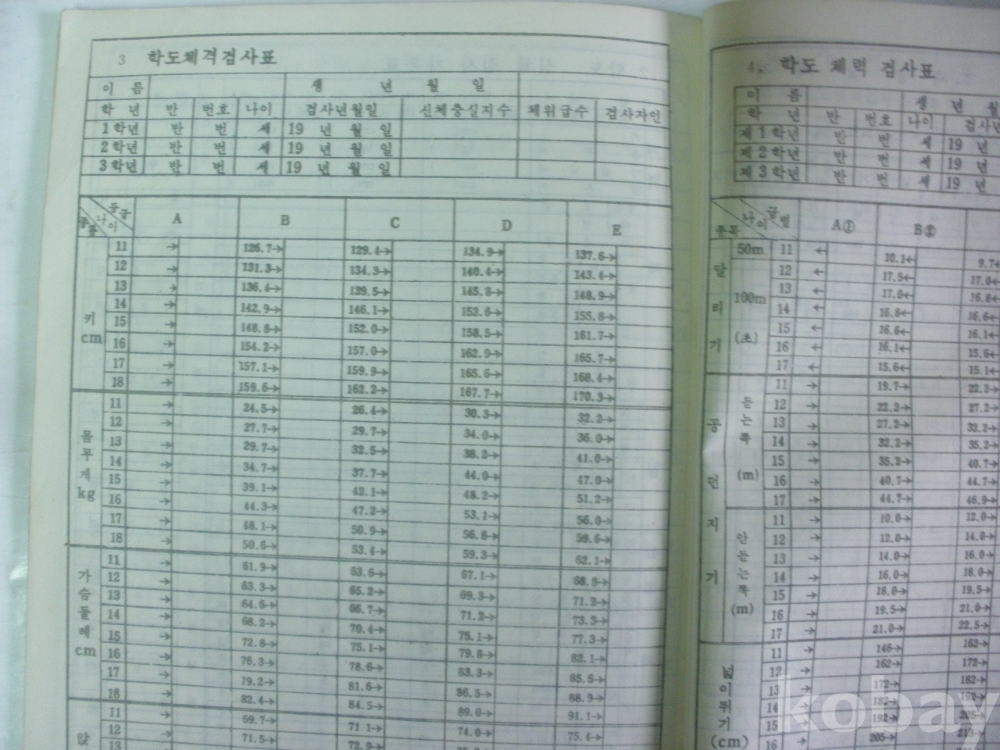 3 학도체격검사표
이 름 생 년 월 일
학 년 반 번호 나이 검사년월일 신체충실지수 체위급수 검사자인
1학년 반 번 세 19 년 월 일
2학년 반 번 세 19 년 월 일
3학년 반 번 세 19 년 월 일
등급 나이 종목 A B C D E
키 cm
11 → 126.7→ 129.4→ 134.9→ 137.6→
12 → 131.3→ 134.3→ 140.4→ 143.4→
13 → 136.4→ 139.5→ 145.8→ 148.9→
14 → 142.9→ 146.1→ 152.6→ 155.8→
15 → 148.8→ 152.0→ 158.5→ 161.7→
16 → 154.2→ 157.0→ 162.9→ 165.7→
17 → 157.1→ 159.9→ 165.6→ 168.4→
18 → 159.6→ 162.2→ 167.7→ 170.3→
몸무게 kg
11 → 24.5→ 26.4→ 30.3→ 32.2→
12 → 27.7→ 29.7→ 34.0→ 36.0→
13 → 29.7→ 32.5→ 38.2→ 41.0→
14 → 34.7→ 37.7→ 44.0→ 47.0→
15 → 39.1→ 42.1→ 48.2→ 51.2→
16 → 44.3→ 47.2→ 53.1→ 56.0→
17 → 48.1→ 50.9→ 56.8→ 59.6→
18 → 50.6→ 53.4→ 59.3→ 62.1→
가슴둘레 cm
11 → 61.9→ 63.6→ 67.1→ 68.8→
12 → 63.3→ 65.2→ 69.3→ 71.2→
13 → 64.6→ 66.7→ 71.2→ 73.3→
14 → 68.2→ 70.4→ 75.1→ 77.3→
15 → 72.8→ 75.1→ 79.8→ 82.1→
16 → 76.3→ 78.6→ 83.3→ 85.6→
17 → 79.2→ 81.6→ 86.5→ 88.9→
18 → 82.4→ 84.5→ 89.0→ 91.1→
앉
11 → 69.7→ 71.1→ 74.0→ 75.4→
12 → 71.5→ 72.9→
13
4. 학도 체력 검사표
이 름 생 년 월
학 년 반 번호 나이 검사년
제1학년 반 번 세 19 년
제2학년 반 번 세 19 년
제3학년 반 번 세 19 년
급별 나이 종목 A① B②
달리기 (초)
50m 11 ← 10.1← 9.7←
12 ← 17.5← 17.0←
13 ← 17.0← 16.8←
100m 14 ← 16.8← 16.6←
15 ← 16.6← 16.1←
16 ← 16.1← 15.6←
17 ← 15.6← 15.1←
공던지기
듣는쪽 (m)
11 → 19.7→ 22.2→
12 → 22.2→ 27.2→
13 → 27.2→ 32.2→
14 → 32.2→ 35.2→
15 → 35.2→ 40.7→
16 → 40.7→ 44.7→
17 → 44.7→ 46.9→
안듣는쪽 (m)
11 → 10.0→ 12.0→
12 → 12.0→ 14.0→
13 → 14.0→ 16.0→
14 → 16.0→ 18.0→
15 → 18.0→ 19.5→
16 → 19.5→ 21.0→
17 → 21.0→ 22.5→
넓이뛰기 (cm)
11 → 146→ 162→
12 → 162→ 172→
13 → 172→ 182→
14 → 182→ 192→
15 → 192→ 205→
16 → 205→
kobay